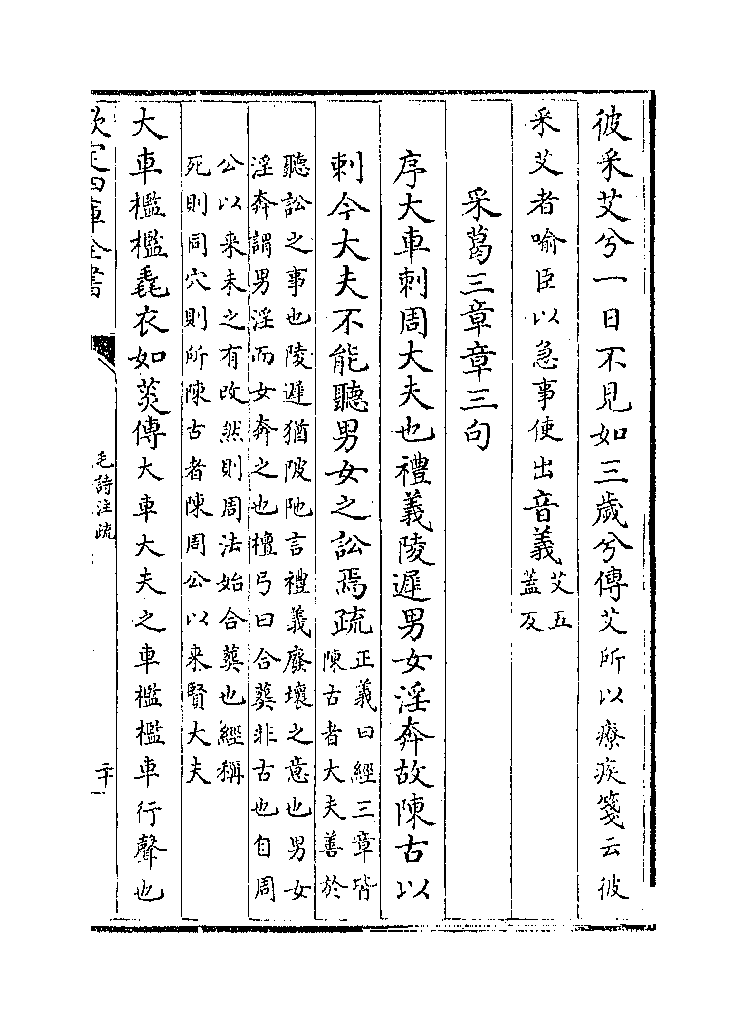 彼采艾兮一日不見如三歲兮傳艾所以療疾箋云彼
采艾者喻臣以急事使出音義艾五
蓋反
采葛三章章三句
序大車刺周大夫也禮義陵遲男女淫奔故陳古以
刺今大夫不能聽男女之訟焉疏正義曰經三章皆
陳古者大夫善於
聽訟之事也陵遲猶陂阤言禮義廢壞之意也男女
淫奔謂男淫而女奔之也檀弓曰合葬非古也自周
公以來未之有改然則周法始合葬也經稱
死則同穴則所陳古者陳周公以來賢大夫
大車檻檻毳衣如菼傳大車大夫之車檻檻車行聲也
欽定四庫全書
毛詩注疏
二十